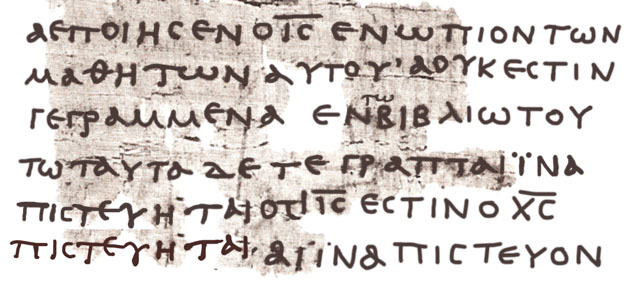 ΑΕΠΟΙΗϹΕΝΟΙ̅Ϲ̅ ΕΝΩΠΙΟΝΤΩΝ
ΜΑΘΗΤΩΝΑΥΤΟΥ'ΑΟΥΚΕϹΤΙΝ
ΓΕΓΡΑΜΜΕΝΑ ΕΝΤΩΒΙΒΛΙΩΤΟΥ
ΤΩΤΑΥΤΑΔΕΓΕΓΡΑΠΤΑΙΪΝΑ
ΠΙϹΤΕΥΗΤΑΙΟΤΙΙ̅Ϲ̅ ΕϹΤΙΝΟΧ̅Ϲ̅
ΠΙϹΤΕΥΗΤΑΙ ΠΙϹΤΕΥΟΝ